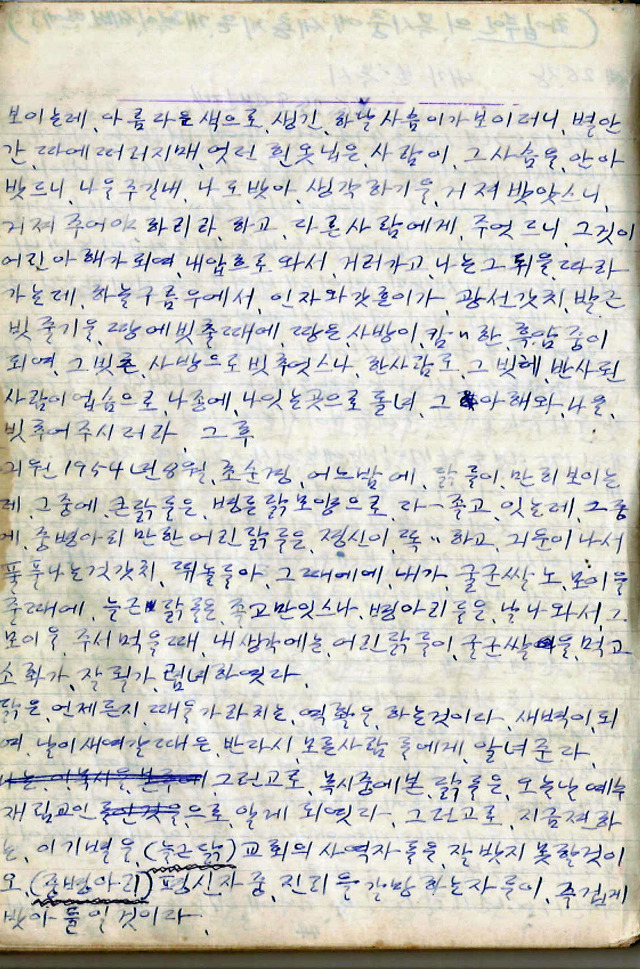 보이는데, 아름다운 색으로, 생긴, 하날 사슴이가 보이더니, 별안
간, 따에 떠러지매, 엇던 흰옷 닙은 사람이, 그 사슴을, 안아
밧드니, 나을 주길내, 나도 밧아, 생각하기을, 거져 밧앗스니,
거져 주어야 하리라, 하고, 다른 사람에게, 주엇드니, 그것이
어린 아해가 되여, 내 압흐로 와서, 거러가고, 나는 그 뒤을 따라
가는데, 하늘 구름 우에서, 인자와 갓흔이가, 광선갓치, 발근
빗줄기을, 땅에 빗출때에, 땅은 사방이, 캄〃한 흑암중이
되여, 그 빗흔, 사방으로 빗추엿스나, 한사람도, 그 빗헤, 반사된
사람이 업슴으로, 나종에, 나 잇는 곳으로 돌녀, 그 아해와 나을,
빗추어 주시러라, 그후
거원 1954년 8월, 초순경, 어느밤에, 닭들이, 만히 보이는
데, 그중에, 큰 닭들은, 병든 닭 모양으로 다ㅡ 졸고, 잇는데, 그중
에, 중병아리 만한 어린 닭들은, 정신이 똑〃하고, 기운이 나서
풀풀나는것 갓치, 뛰놀들아, 그때에에, 내가, 굴근 쌀노, 모이을
줄때에, 늘근 닭들은, 졸고만 잇스나, 병아리들은, 날나와서, 그
모이을, 주서 먹을때, 내 생각에는, 어린 닭들이, 굴근 쌀을, 먹고
소화가, 잘 될가, 렴녀하엿다,
닭은, 언제든지, 때을 가라치는, 역활을, 하는것이다, 새벽이, 되
여, 날이 새여갈 때은, 반다시, 모든사람들에게, 알녀준다,
그런고로, 묵시중에 본, 닭들은, 오늘날 예수
재림교인들 으로, 알게 되엿다, 그런고로, 지금 젼하
는, 이 기별을, (늘근닭) 교회의 사역자들은, 잘 밧지 못할것이
오, (중병아리) 평신자 중, 진리을 갈망하는자들이, 즐겁게
밧아 들일것이다,